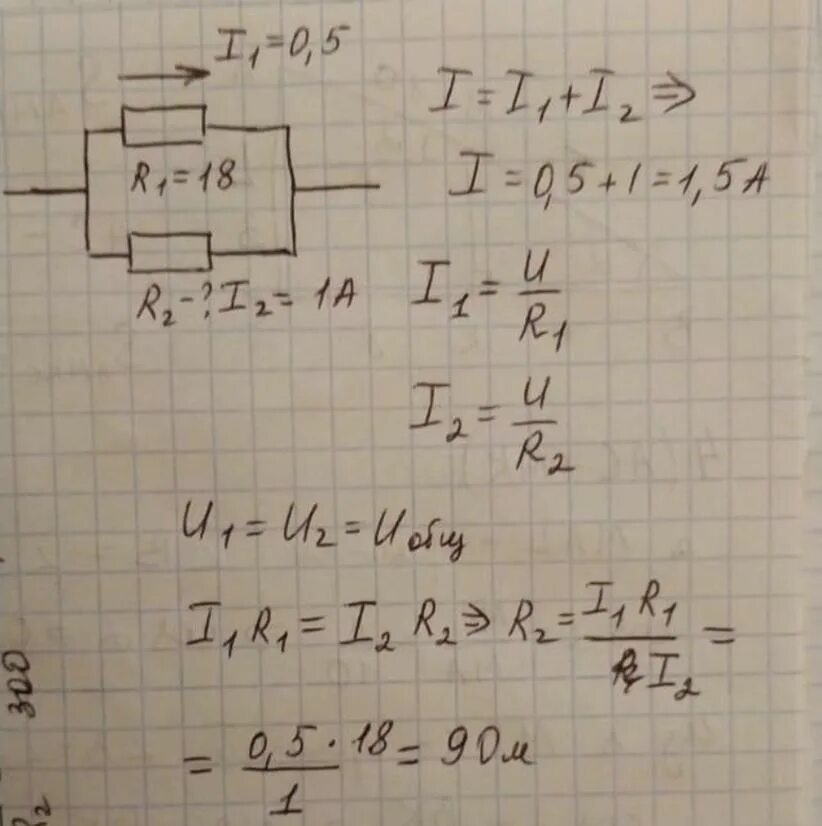 I₁=0,5
R₁=18
R₂-? I₂= 1A
I = I₁+I₂ ⇒
I = 0,5+1=1,5A
I₁ = U/R₁
I₂ = U/R₂
U₁ = U₂ = U общ
I₁ R₁ = I₂ R₂ ⇒ R₂ = I₁ R₁ / I₂ =
= 0,5 · 18 / 1 = 9 Ом
300
R₂